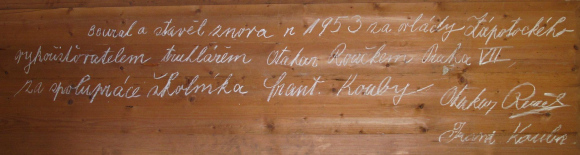 Boural a stavěl znova r 1953 za vlády Zápotockého
vykouškovatelem truhlářem Otakar Rouškem Praha VII
za spolupráce školníka Frant. Kouby
Otakar
Frant Kouba